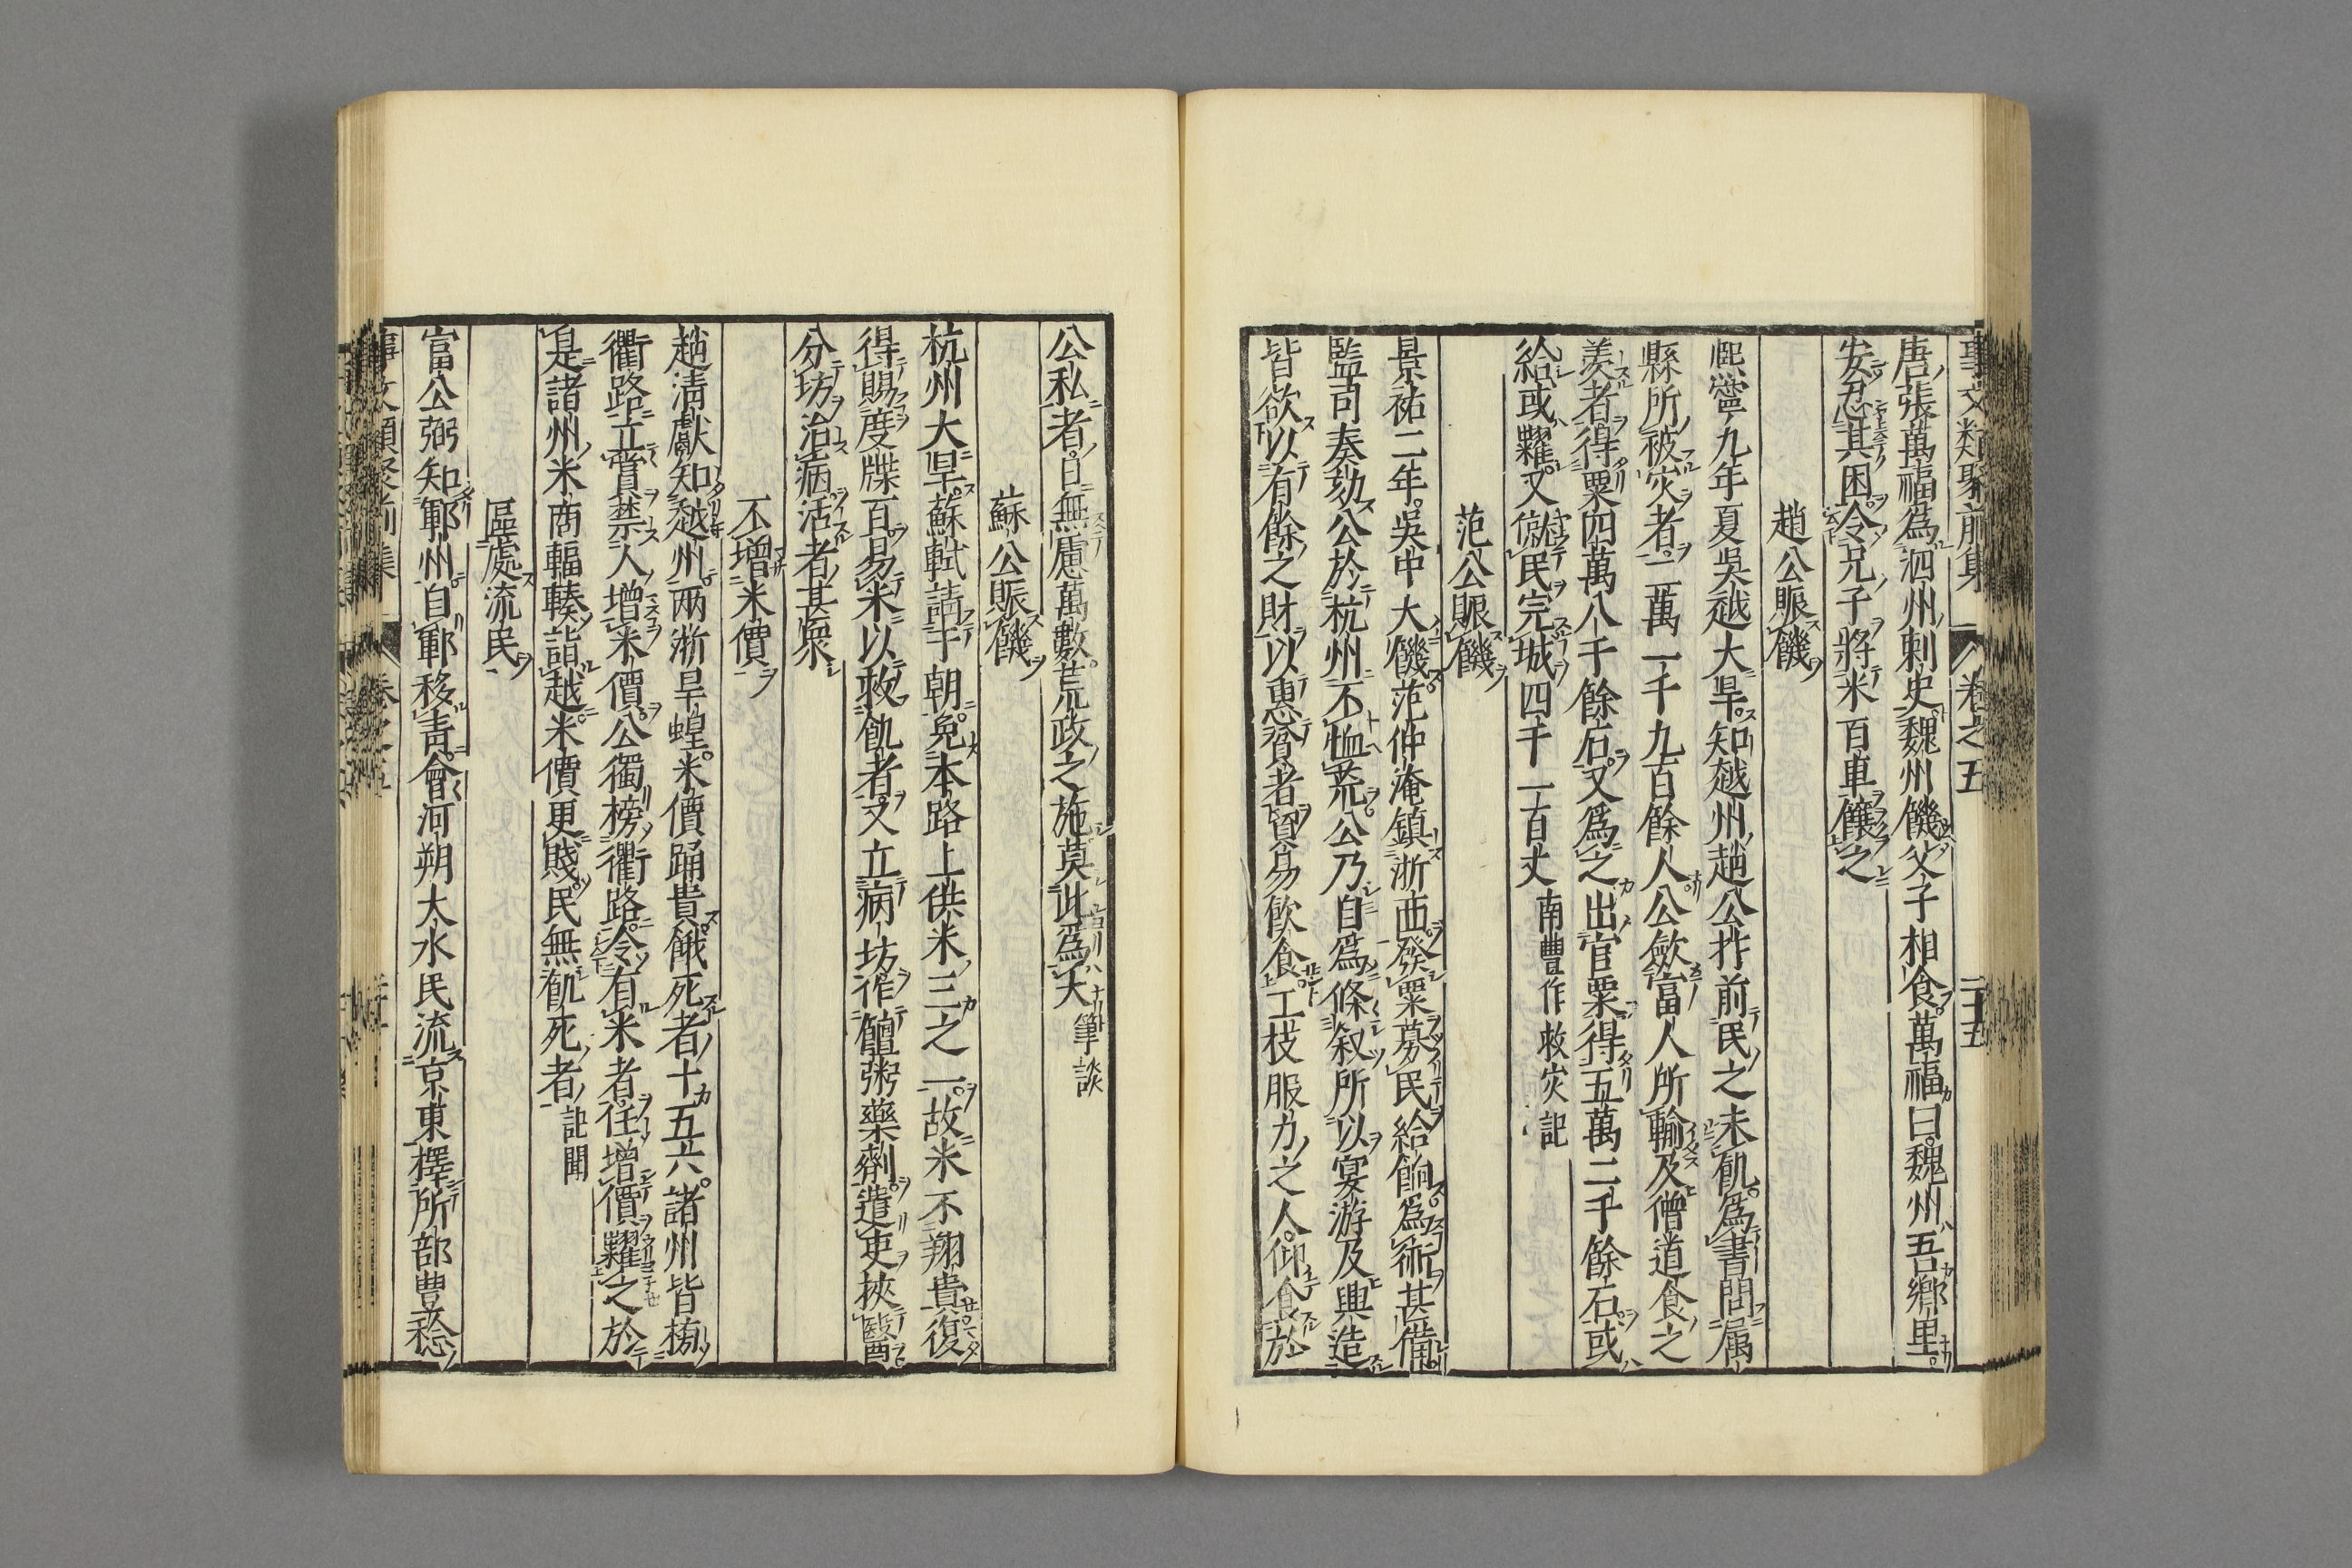 事文類聚前集 卷之五 二十五
唐張萬福爲泗州刺史魏州饑父子相食萬福曰魏州吾鄉里
安忍其困令兄子將米百車饟之
趙公賑饑
熈寧九年夏吳越大旱知越州趙公抃前民之未飢爲書問属
縣所被灾者二萬一千九百餘人公斂富人所輸及僧道食之
羡者得粟四萬八千餘石又爲之出官粟得五萬二千餘石或
給或糶又僦民完城四千一百丈 南豐作救灾記
范公賑饑
景祐二年吳中大饑范仲淹鎮浙西發粟募民給餉爲術甚備
監司奏劾公於杭州不恤荒公乃自爲條叙所以宴游及興造
皆欲以有餘之財以惠貧者貿易飲食工技服力之人仰食於
公私者日無慮萬數荒政之施莫此爲大 筆談
蘇公賑饑
杭州大旱蘇軾請于朝免本路上供米三之一故米不翔貴復
得賜度牒百易米以救飢者又立病坊作饘粥藥劑遣吏挾醫
分坊治病活者甚衆
不增米價
趙清獻知越州兩浙旱蝗米價踊貴餓死者十五六諸州皆榜
衢路立賞禁人增米價公獨榜衢路令有米者任增價糶之於
是諸州米商輻輳詣越米價更賤民無飢死者 記聞
區處流民
富公弼知鄆州自鄆移青會河朔大水民流京東擇所部豊稔
事文類聚前集